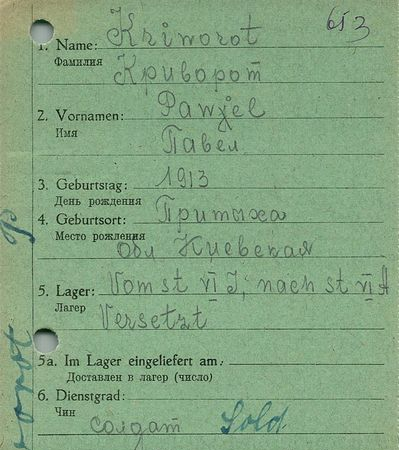 653
1. Name: Kriworot
Фамилия Криворот
2. Vornamen: Pawĵel
Имя Павел
3. Geburtstag: 1913
День рождения
4. Geburtsort: Притыха
Место рождения Обл Киевская
5. Lager: Vom st VI J, nach st VI A
Лагер Versetzt
5a. Im Lager eingeliefert am:
Доставлен в лагер (число)
6. Dienstgrad:
Чин солдат Sold.